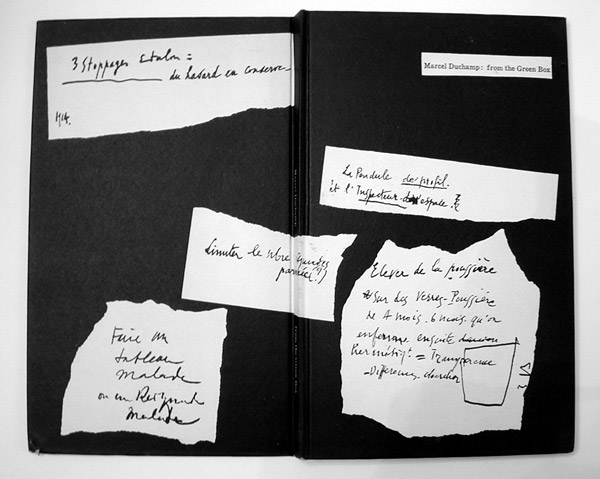 3 Stoppages Etalon =
du hasard en conserve
1914.
Marcel Duchamp: from the Green Box
La Pendule de profil.
et l'Inspecteur d'espace.
Limiter le nbre
Faire un
tableau
malade
ou un Readymade
malade
Elever de la poussière
Sur des Verres. Poussière
de 4 mois. 6 mois. qu'on
enferme ensuite
hermétiqt. = Transparence
- Différence.